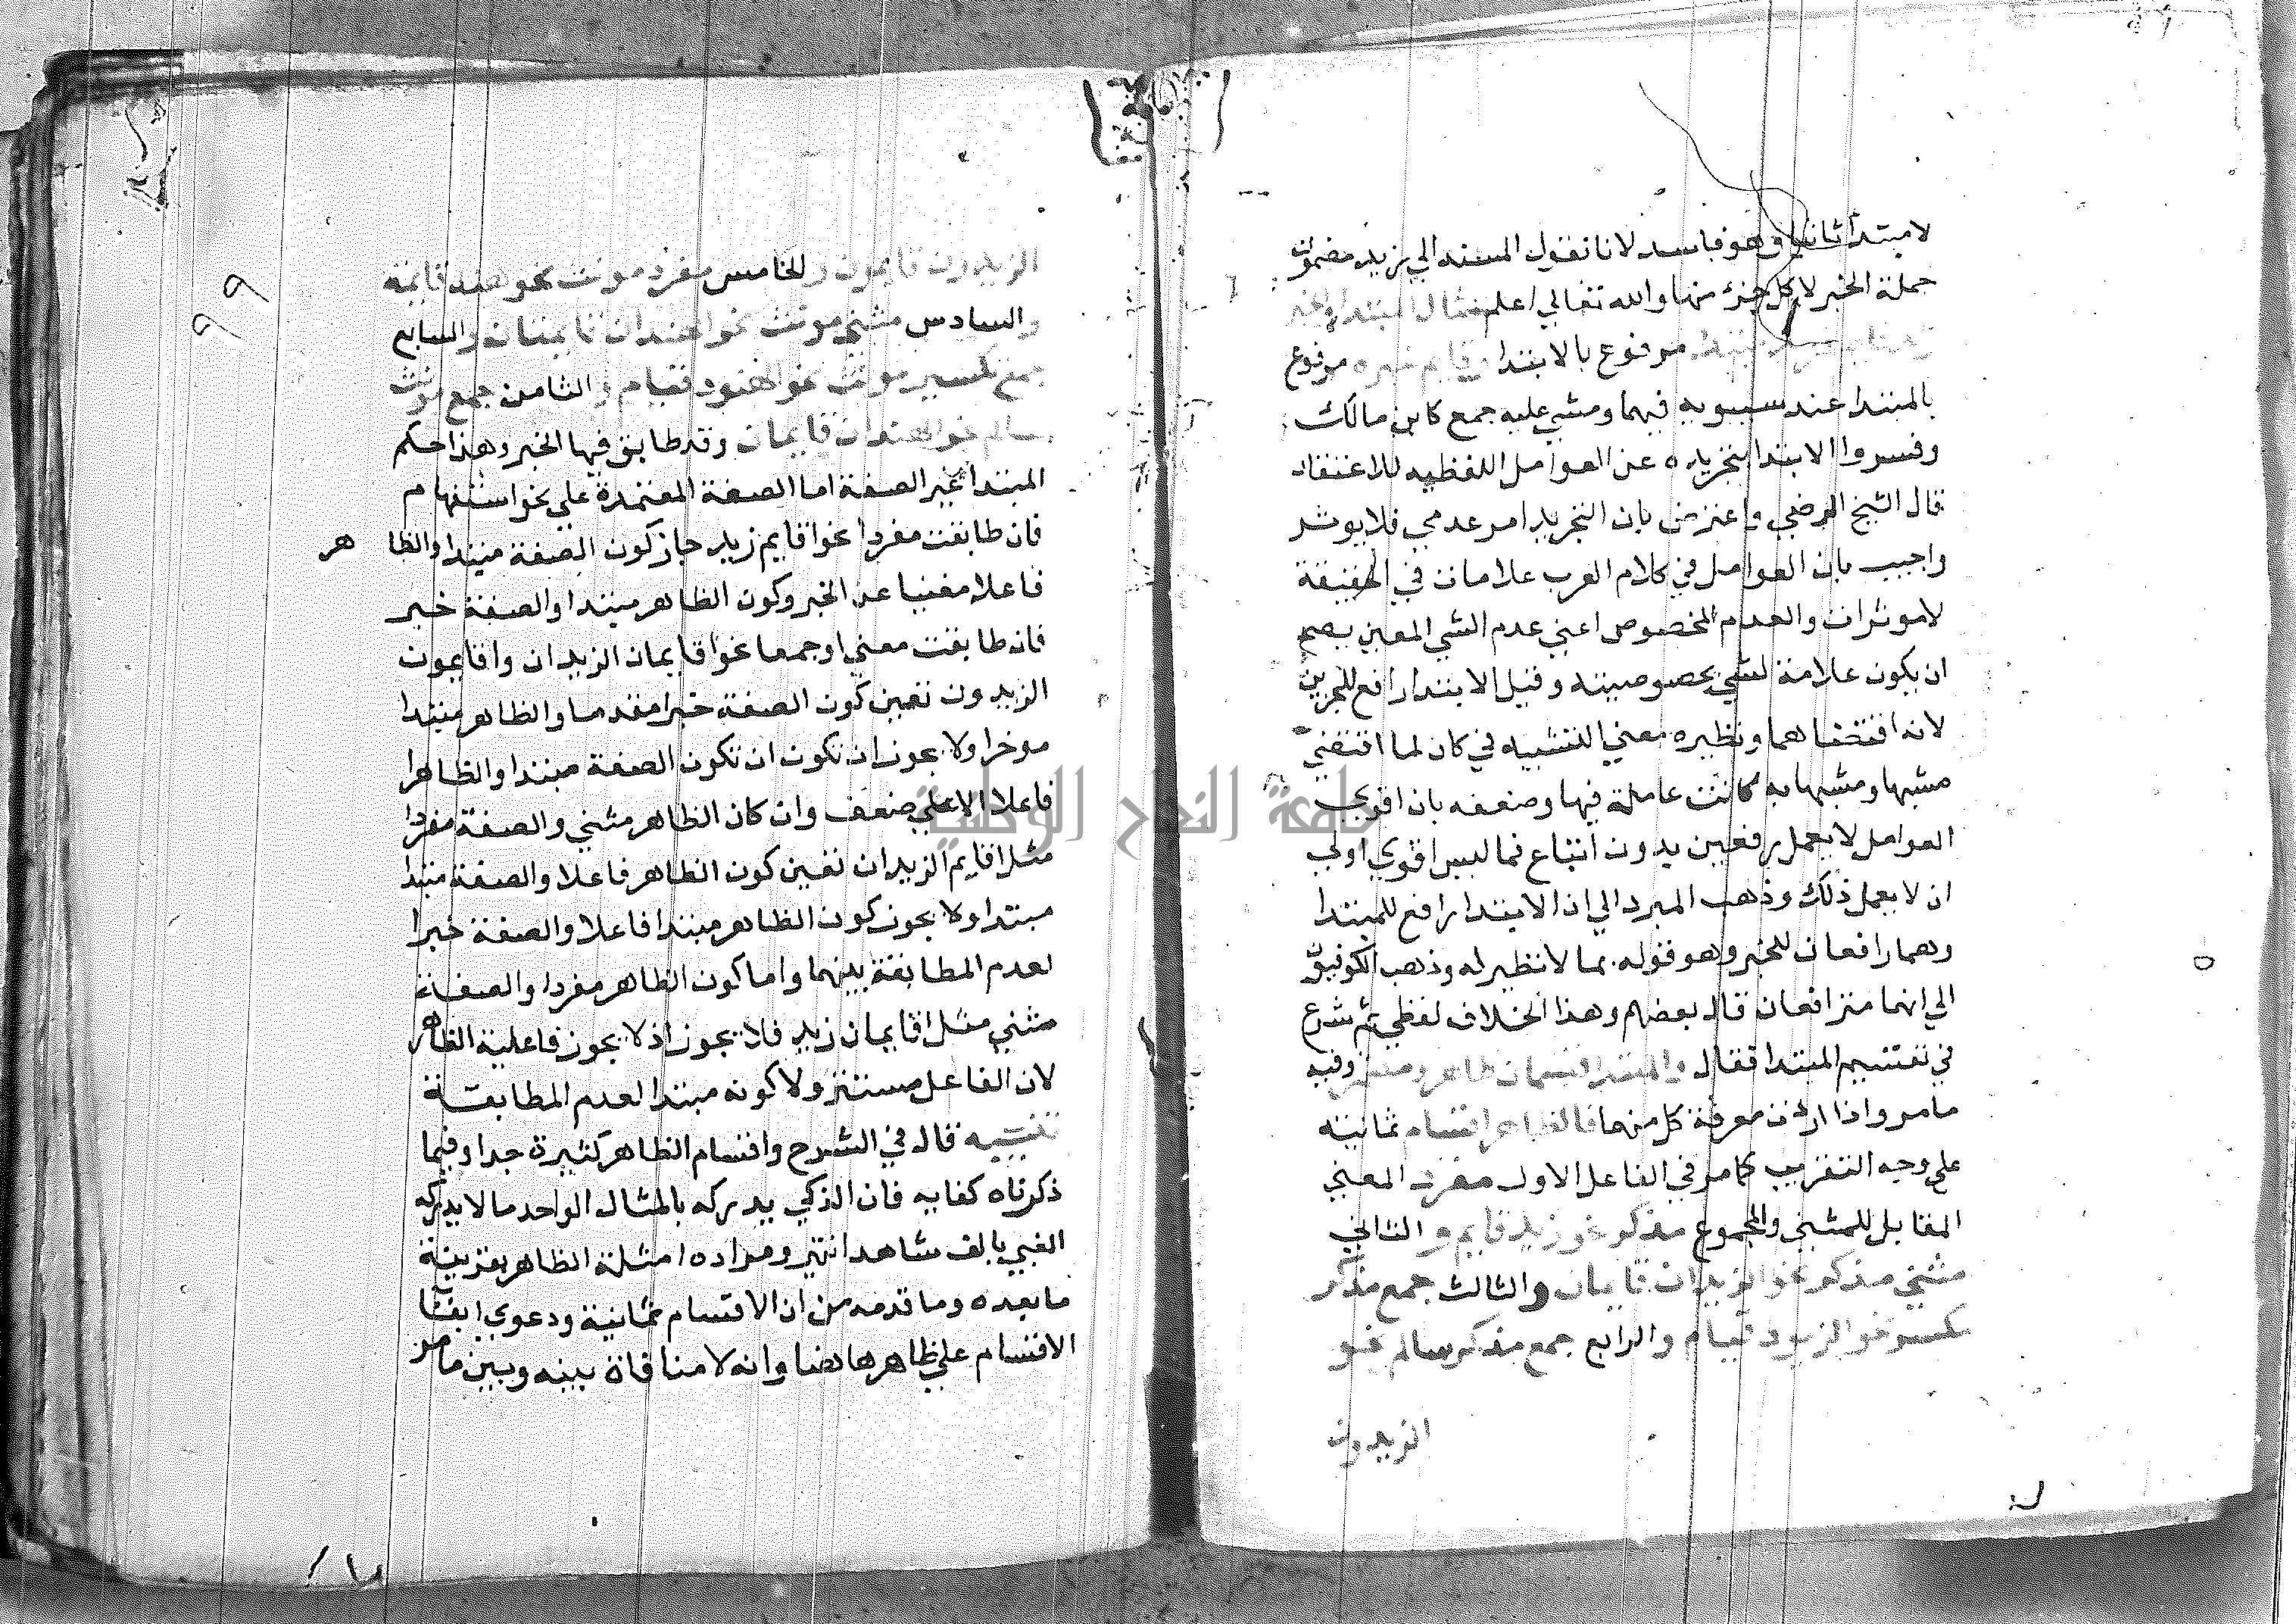 لا مبتدأ ثانيا وهو فاسد لانا نقول المسند الي زيد مضمون
جملة الخبر لا كل جزء منها والله تعالي اعلم مثال المبتدا والخبر
مرفوع بالابتدا وقايم خبره مرفوع
بالمبتدا عند سيبويه فيهما ومشي عليه جمع كابن مالك
وفسروا الابتدا بتجريده عن العوامل اللفظيه للاعتقاد
قال الشيخ الرضي واعترض بان التجريد امر عدمي فلا يوثر
واجيب بان العوامل في كلام العرب علامات في الحقيقة
لا موثرات والعدم المخصوص اعني عدم الشي المعين يصح
ان يكون علامة لشي بخصوصيته وقيل الابتدا رافع للجزين
لانه اقتضاهما ونظيره معني التشبيه في كان لما اقتضي
مشبها ومشبها به كانت عاملة فيها وضعفه بان اقوي
العوامل لا يعمل رفعين بدون اتباع فما ليس اقوي اولي
ان لا يعمل ذلك وذهب المبرد الي ان الابتدا رافع للمبتدا
وهما رافعان للخبر وهو قوله بما لا نظير له وذهب الكوفيون
الي انهما مترافعان قال بعضهم وهذا الخلاف لفظي ثم شرع
في تقسيم المبتدا فقال والمبتدا قسمان ظاهر ومضمر وفيه
ما مر واذا اردت معرفة كل منهما فالظاهر اقسام ثمانية
علي وجه التقريب كما مر في الفاعل الاول مفرد المعني
المقابل للمثني والمجموع مذكر نحو زيد قايم والثاني
مثني مذكر نحو الزيدان قايمان والثالث جمع مذكر
مكسر نحو الزيود قيام والرابع جمع مذكر سالم نحو
الزيدون
99
الزيدون قايمون والخامس مفرد مونث نحو هند قايمة
والسادس مثني مونث نحو الهندان قايمتان والسابع
جمع تكسير مونث نحو الهنود قيام والثامن جمع مونث
سالم نحو الهندات قايمات وقد طابق فيها الخبر وهذا حكم
المبتدا غير الصفة اما الصفة المعتمدة علي نحو استفهام
فان طابقت مفردا نحو اقايم زيد جاز كون الصفة مبتدا والظا هر
فاعلا مغنيا عن الخبر وكون الظاهر مبتدا والصفة خبر
فان طابقت معني او جمعا نحو اقايمان الزيدان واقايمون
الزيدون تعين كون الصفة خبرا مقدما والظاهر مبتدا
موخرا ولا يجوز ان تكون ان تكون الصفة مبتدا والظاهرا
فاعلا الا علي ضعف وان كان الظاهر مثني والصفة مفردا
مثل اقايم الزيدان تعين كون الظاهر فاعلا والصفة مبتدا
مبتدا ولا يجوز كون الظاهر مبتدا فاعلا والصفة خبرا
لعدم المطابقة بينهما واما كون الظاهر مفردا والصفة
مثني مثل اقايمان زيد فلا يجوز اذ لا يجوز فاعلية الظاهر
لان الفاعل مستتر ولا كونه مبتدا لعدم المطابقة
تنبيه قال في الشرح واقسام الظاهر كثيرة جدا وفيما
ذكرناه كفايه فان الذكي يدركه بالمثال الواحد ما لا يدركه
الغبي بالف شاهد انتهي ومراده امثلة الظاهر بقرينة
ما بعده وما قدمه من ان الاقسام ثمانية ودعوي ابقا
الاقسام علي ظاهرها وانه لا منافاة بينه وبين ما مر
جامعة النجاح الوطنية